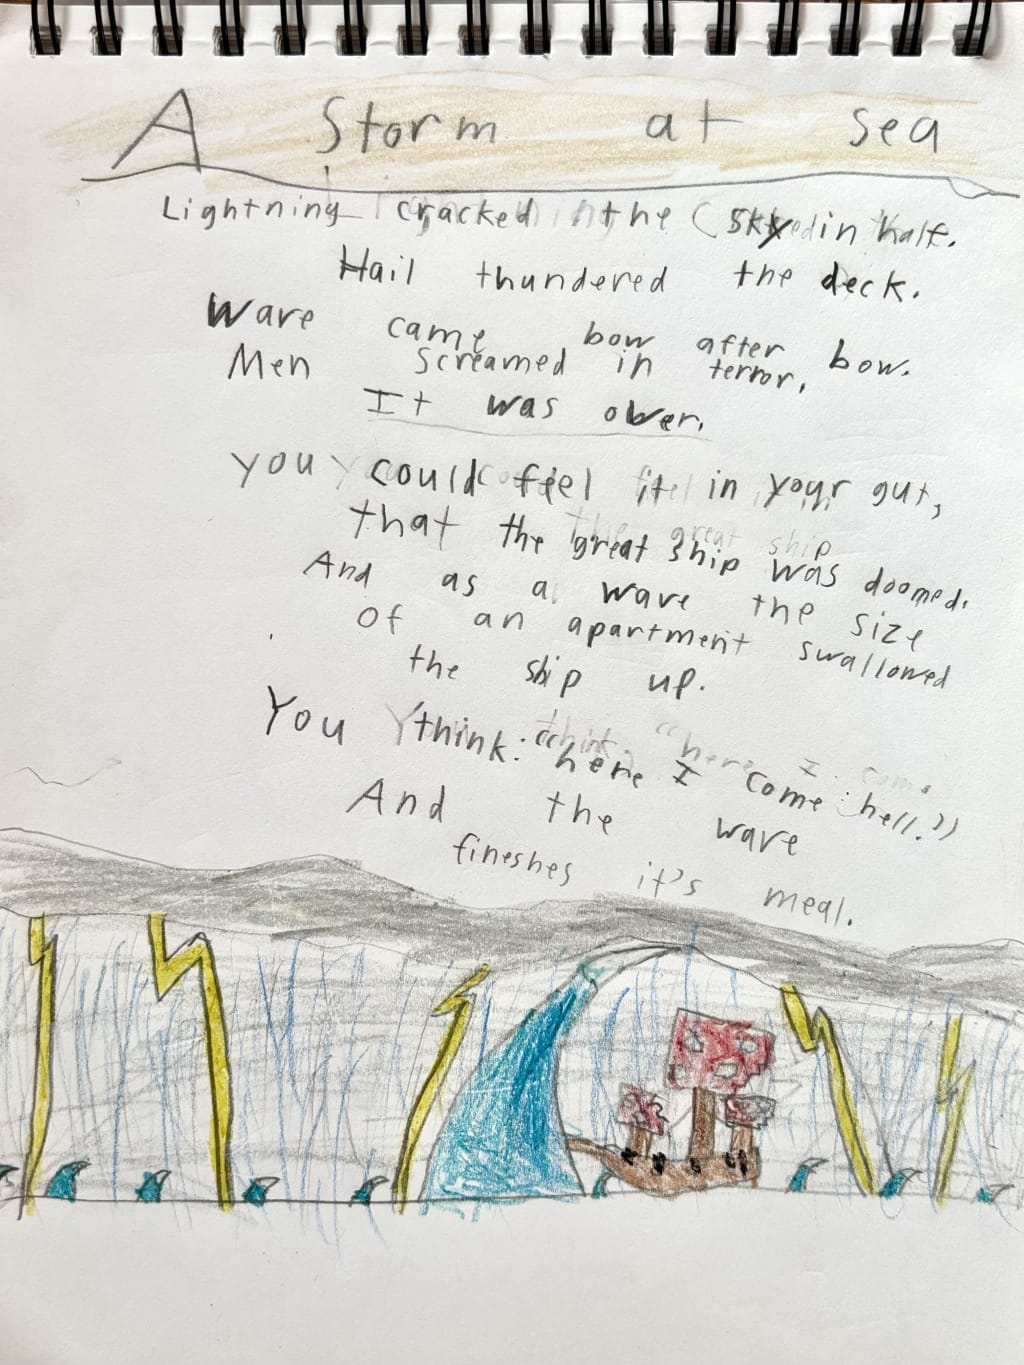 A Storm at sea
Lightning cracked the sky in half.
Hail thundered the deck.
Wave came bow after bow.
Men screamed in terror,
It was over.
you could feel it in your gut,
that the great ship was doomed.
And as a wave the size
of an apartment swallowed
the ship up.
You think: "here I come hell."
And the wave
fineshes it's meal.